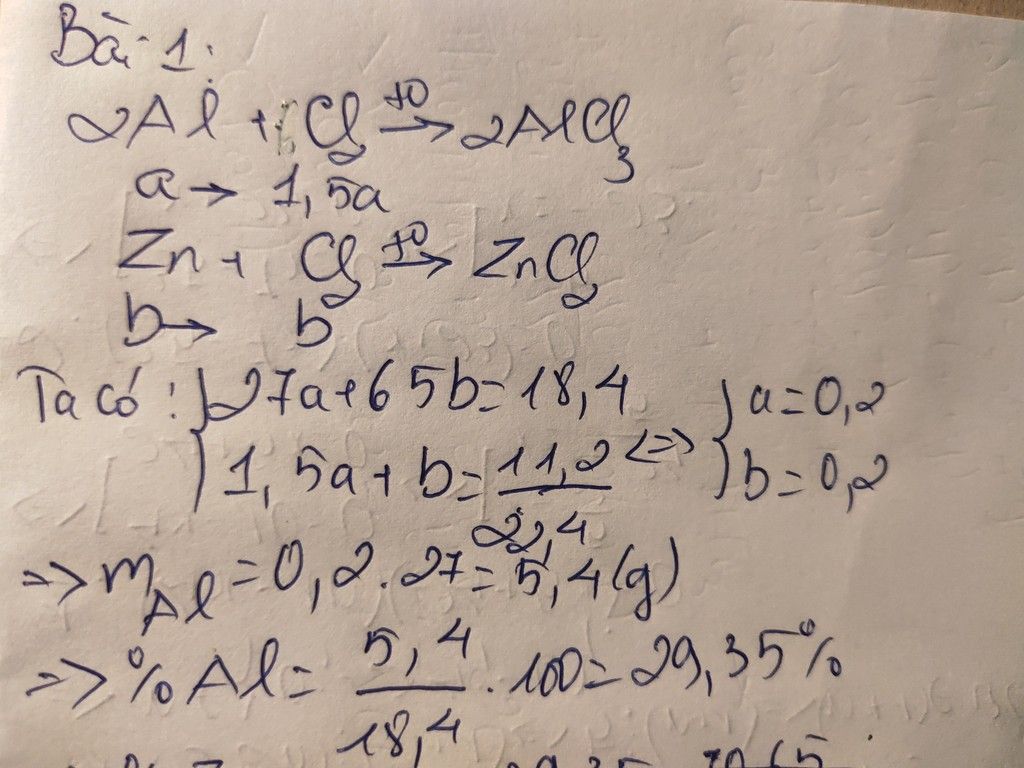 Bài 1:
2Al + Cl₂ →(t0) 2AlCl₃
a → 1,5a
Zn + Cl₂ →(t0) ZnCl₂
b → b
Ta có: { 27a+65b=18,4
1,5a+b=11,2/22,4 <=> { a=0,2
b=0,2
=> mAl = 0,2.27=5,4(g)
=> %Al = 5,4/18,4 . 100 = 29,35%